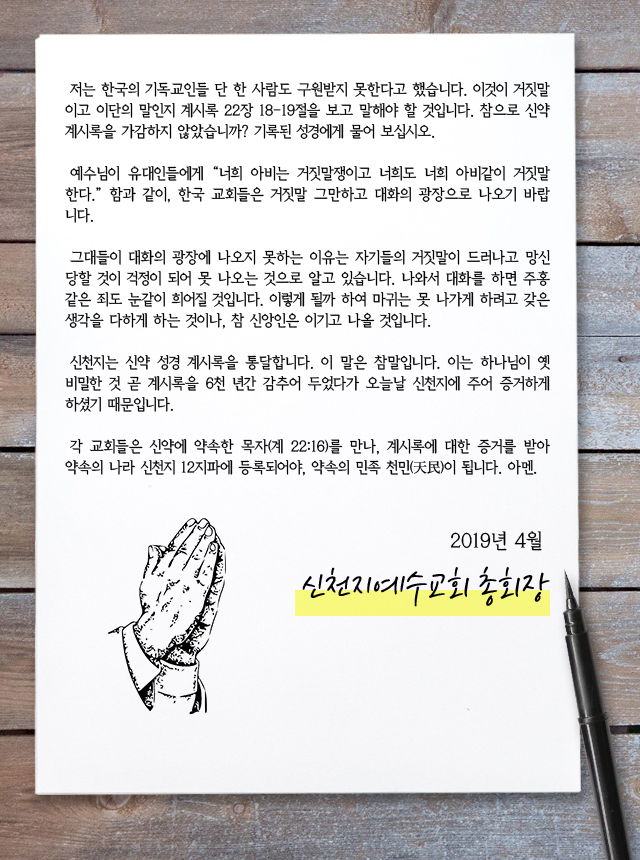 저는 한국의 기독교인들 단 한 사람도 구원받지 못한다고 했습니다. 이것이 거짓말
이고 이단의 말인지 계시록 22장 18-19절을 보고 말해야 할 것입니다. 참으로 신약
계시록을 가감하지 않았습니까? 기록된 성경에게 물어 보십시오.
예수님이 유대인들에게 “너희 아비는 거짓말쟁이고 너희도 너희 아비같이 거짓말
한다.” 함과 같이, 한국 교회들은 거짓말 그만하고 대화의 광장으로 나오기 바랍
니다.
그대들이 대화의 광장에 나오지 못하는 이유는 자기들의 거짓말이 드러나고 망신
당할 것이 걱정이 되어 못 나오는 것으로 알고 있습니다. 나와서 대화를 하면 주홍
같은 죄도 눈같이 희어질 것입니다. 이렇게 될까 하여 마귀는 못 나가게 하려고 갖은
생각을 다하게 하는 것이나, 참 신앙인은 이기고 나올 것입니다.
신천지는 신약 성경 계시록을 통달합니다. 이 말은 참말입니다. 이는 하나님이 옛
비밀한 것 곧 계시록을 6천 년간 감추어 두었다가 오늘날 신천지에 주어 증거하게
하셨기 때문입니다.
각 교회들은 신약에 약속한 목자(계 22:16)를 만나, 계시록에 대한 증거를 받아
약속의 나라 신천지 12지파에 등록되어야, 약속의 민족 천민(天民)이 됩니다. 아멘.
2019년 4월
신천지예수교회 총회장